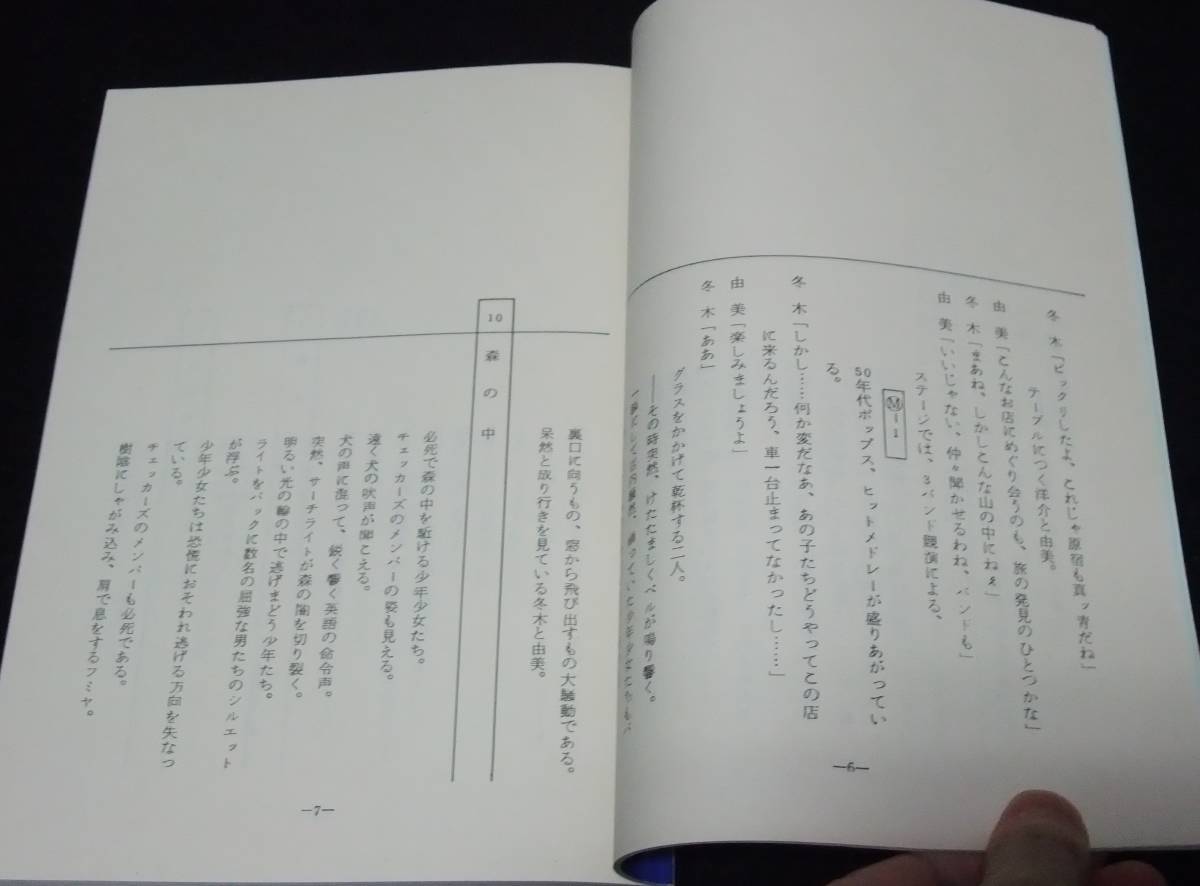 冬　木「ビックリしたよ、これじゃ原宿も真ッ青だね」
テーブルにつく洋介と由美。
由　美「こんなお店にめぐり会うのも、旅の発見のひとつかな」
冬　木「まあね、しかしこんな山の中にねぇ」
由　美「いいじゃない、仲々聞かせるわね、バンドも」
ステージでは、3バンド競演による、
Ⓜ-1
50年代ポップス、ヒットメドレーが盛りあがってい
る。
冬　木「しかし……何か変だなあ、あの子たちどうやってこの店
に来るんだろう、車一台止まってなかったし……」
由　美「楽しみましょうよ」
冬　木「ああ」
グラスをかかげて乾杯する二人。
――その時突然、けたたましくベルが鳴り響く。
一瞬にして店内騒然。踊っていた少年少女たちもバ
―6―
裏口に向うもの、窓から飛び出すもの大騒動である。
呆然と成り行きを見ている冬木と由美。
10 森の中
必死で森の中を駈ける少年少女たち。
チェッカーズのメンバーの姿も見える。
遠く犬の吠声が聞こえる。
犬の声に混って、鋭く響く英語の命令声。
突然、サーチライトが森の闇を切り裂く。
明るい光の輪の中で逃げまどう少年たち。
ライトをバックに数名の屈強な男たちのシルエット
が浮ぶ。
少年少女たちは恐慌におそわれ逃げる方向を失なっ
ている。
チェッカーズのメンバーも必死である。
樹陰にしゃがみ込み、肩で息をするフミヤ。
―7―